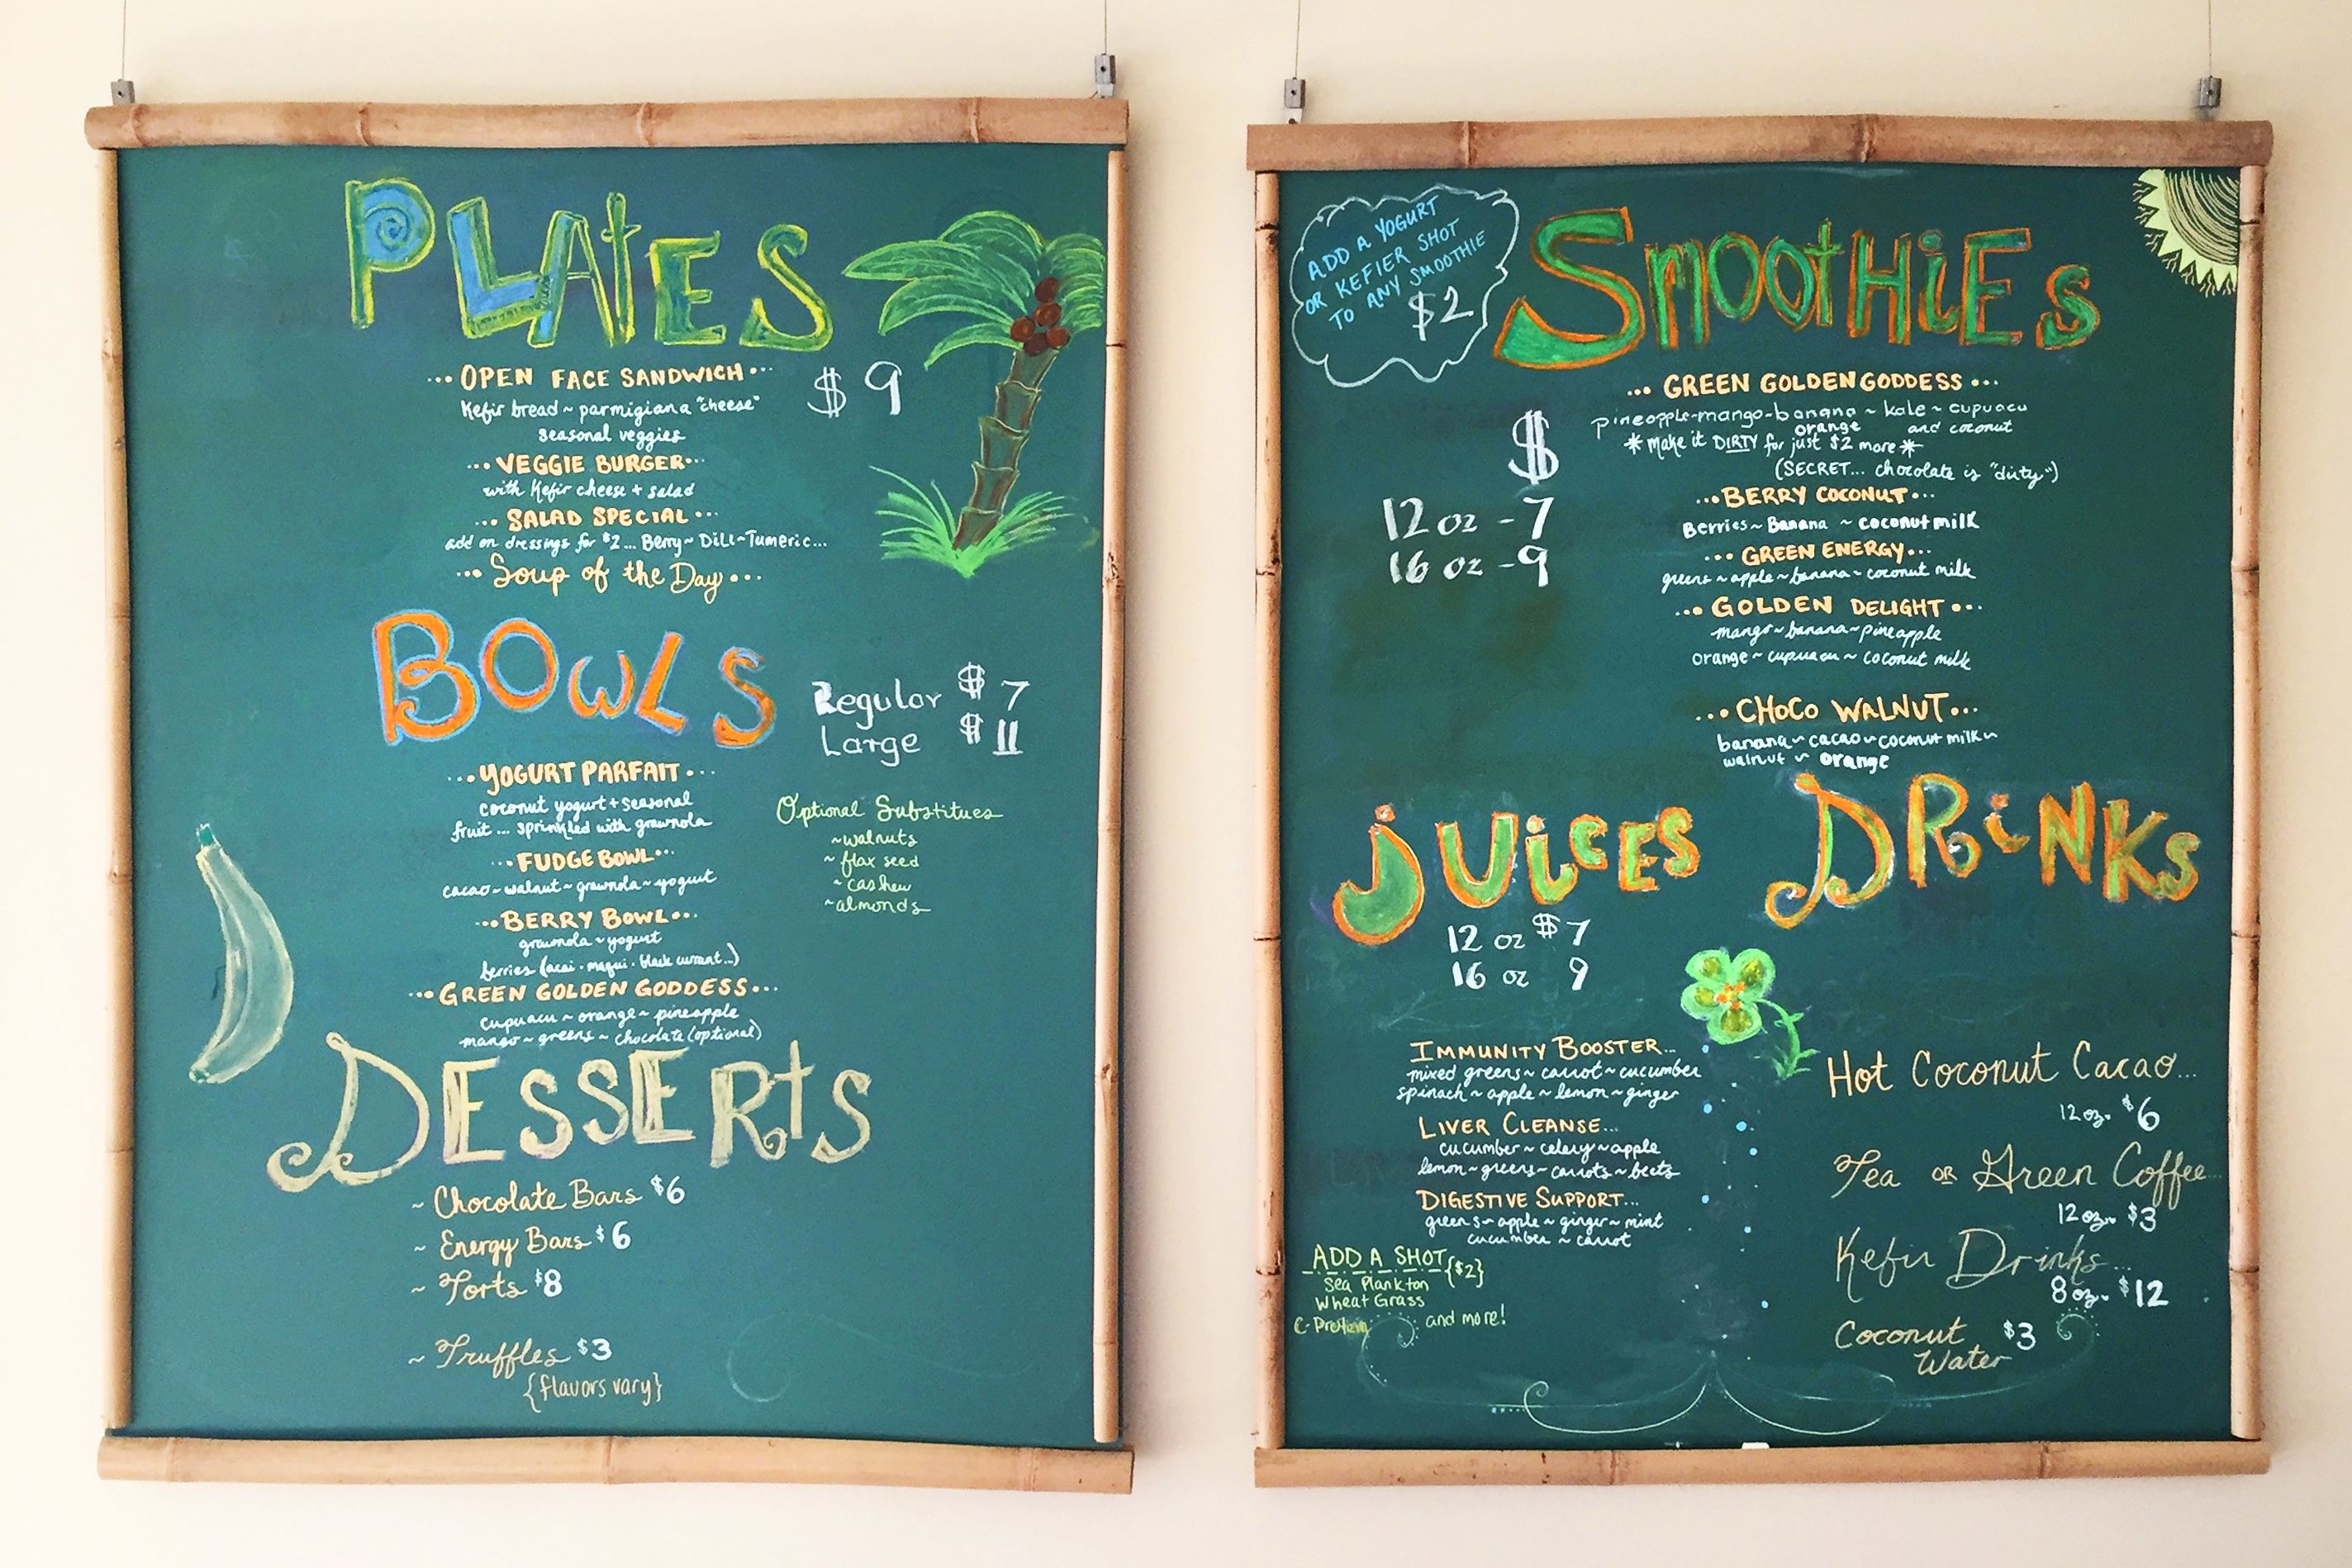 PLAtES
...OPEN FACE SANDWICH...
$9
Kefir bread ~ parmigiana "cheese"
seasonal veggies
...VEGGIE BURGER...
with Kefir cheese + salad
...SALAD SPECIAL...
add on dressings for $2... Berry~Dill~Tumeric...
...Soup of the Day...
BOwLS
Regular $7
Large $11
...YOGURT PARFAIT...
coconut yogurt + seasonal
fruit... sprinkled with grawnola
...FUDGE BOWL...
cacao ~ walnut ~ grawnola ~ yogurt
...BERRY BOWL...
grawnola ~ yogurt
berries (acai · maqui · black currant...)
...GREEN GOLDEN GODDESS...
cupuacu ~ orange ~ pineapple
mango ~ greens ~ chocolate (optional)
Optional Substitues
~walnuts
~ flax seed
~cashew
~almonds
DESSERtS
~ Chocolate Bars $6
~ Energy Bars $6
~ Torts $8
~ Truffles $3
{flavors vary}
ADD A YOGURT
OR KEFIER SHOT
TO ANY SMOOTHIE
$2
SmootHiEs
...GREEN GOLDEN GODDESS...
pineapple-mango-banana ~ kale ~ cupuacu
orange and coconut
*make it DIRTY for just $2 more*
(SECRET... chocolate is "dirty")
$
12 oz - 7
16 oz - 9
...BERRY COCONUT...
Berries ~ Banana ~ coconut milk
...GREEN ENERGY...
greens ~ apple ~ banana ~ coconut milk
...GOLDEN DELIGHT...
mango ~ banana ~ pineapple
orange ~ cupuacu ~ coconut milk
...CHOCO WALNUT...
banana ~ cacao ~ coconut milk ~
walnut ~ orange
JUiCES
12 oz $7
16 oz 9
IMMUNITY BOOSTER...
mixed greens ~ carrot ~ cucumber
spinach ~ apple ~ lemon ~ ginger
LIVER CLEANSE...
cucumber ~ celery ~ apple
lemon ~ greens ~ carrots ~ beets
DIGESTIVE SUPPORT...
greens ~ apple ~ ginger ~ mint
cucumber ~ carrot
ADD A SHOT {$2}
Sea Plankton
Wheat Grass
C-Protein and more!
DRiNKs
Hot Coconut Cacao...
12 oz. $6
Tea OR Green Coffee...
12 oz. $3
Kefir Drinks...
8 oz. $12
Coconut $3
Water